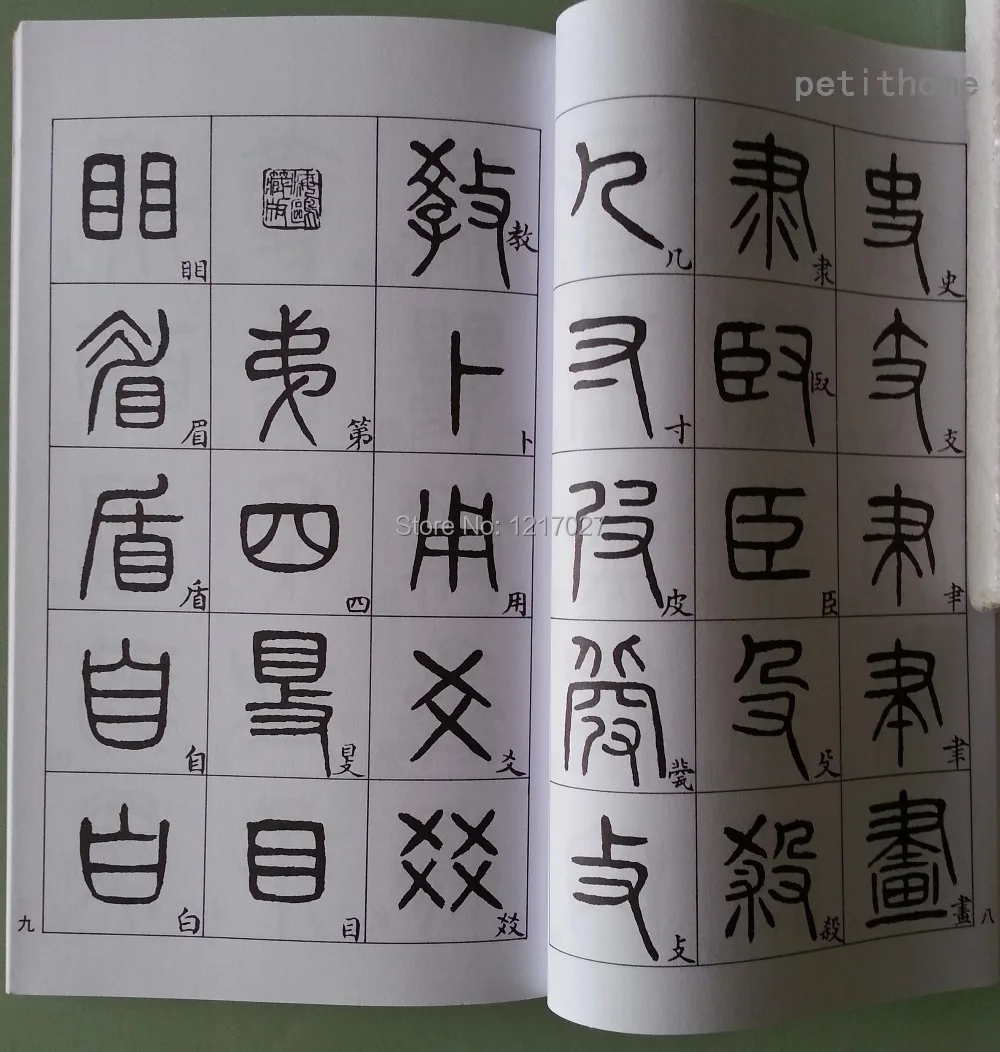 petithome
史
支
𦘒
聿
畫
隶
臤
臣
殳
殺
几
寸
皮
㼱
攴
八
教
卜
用
爻
㸚
第
四
𥄎
目
䀠
眉
盾
自
白
九
Store No: 1217027